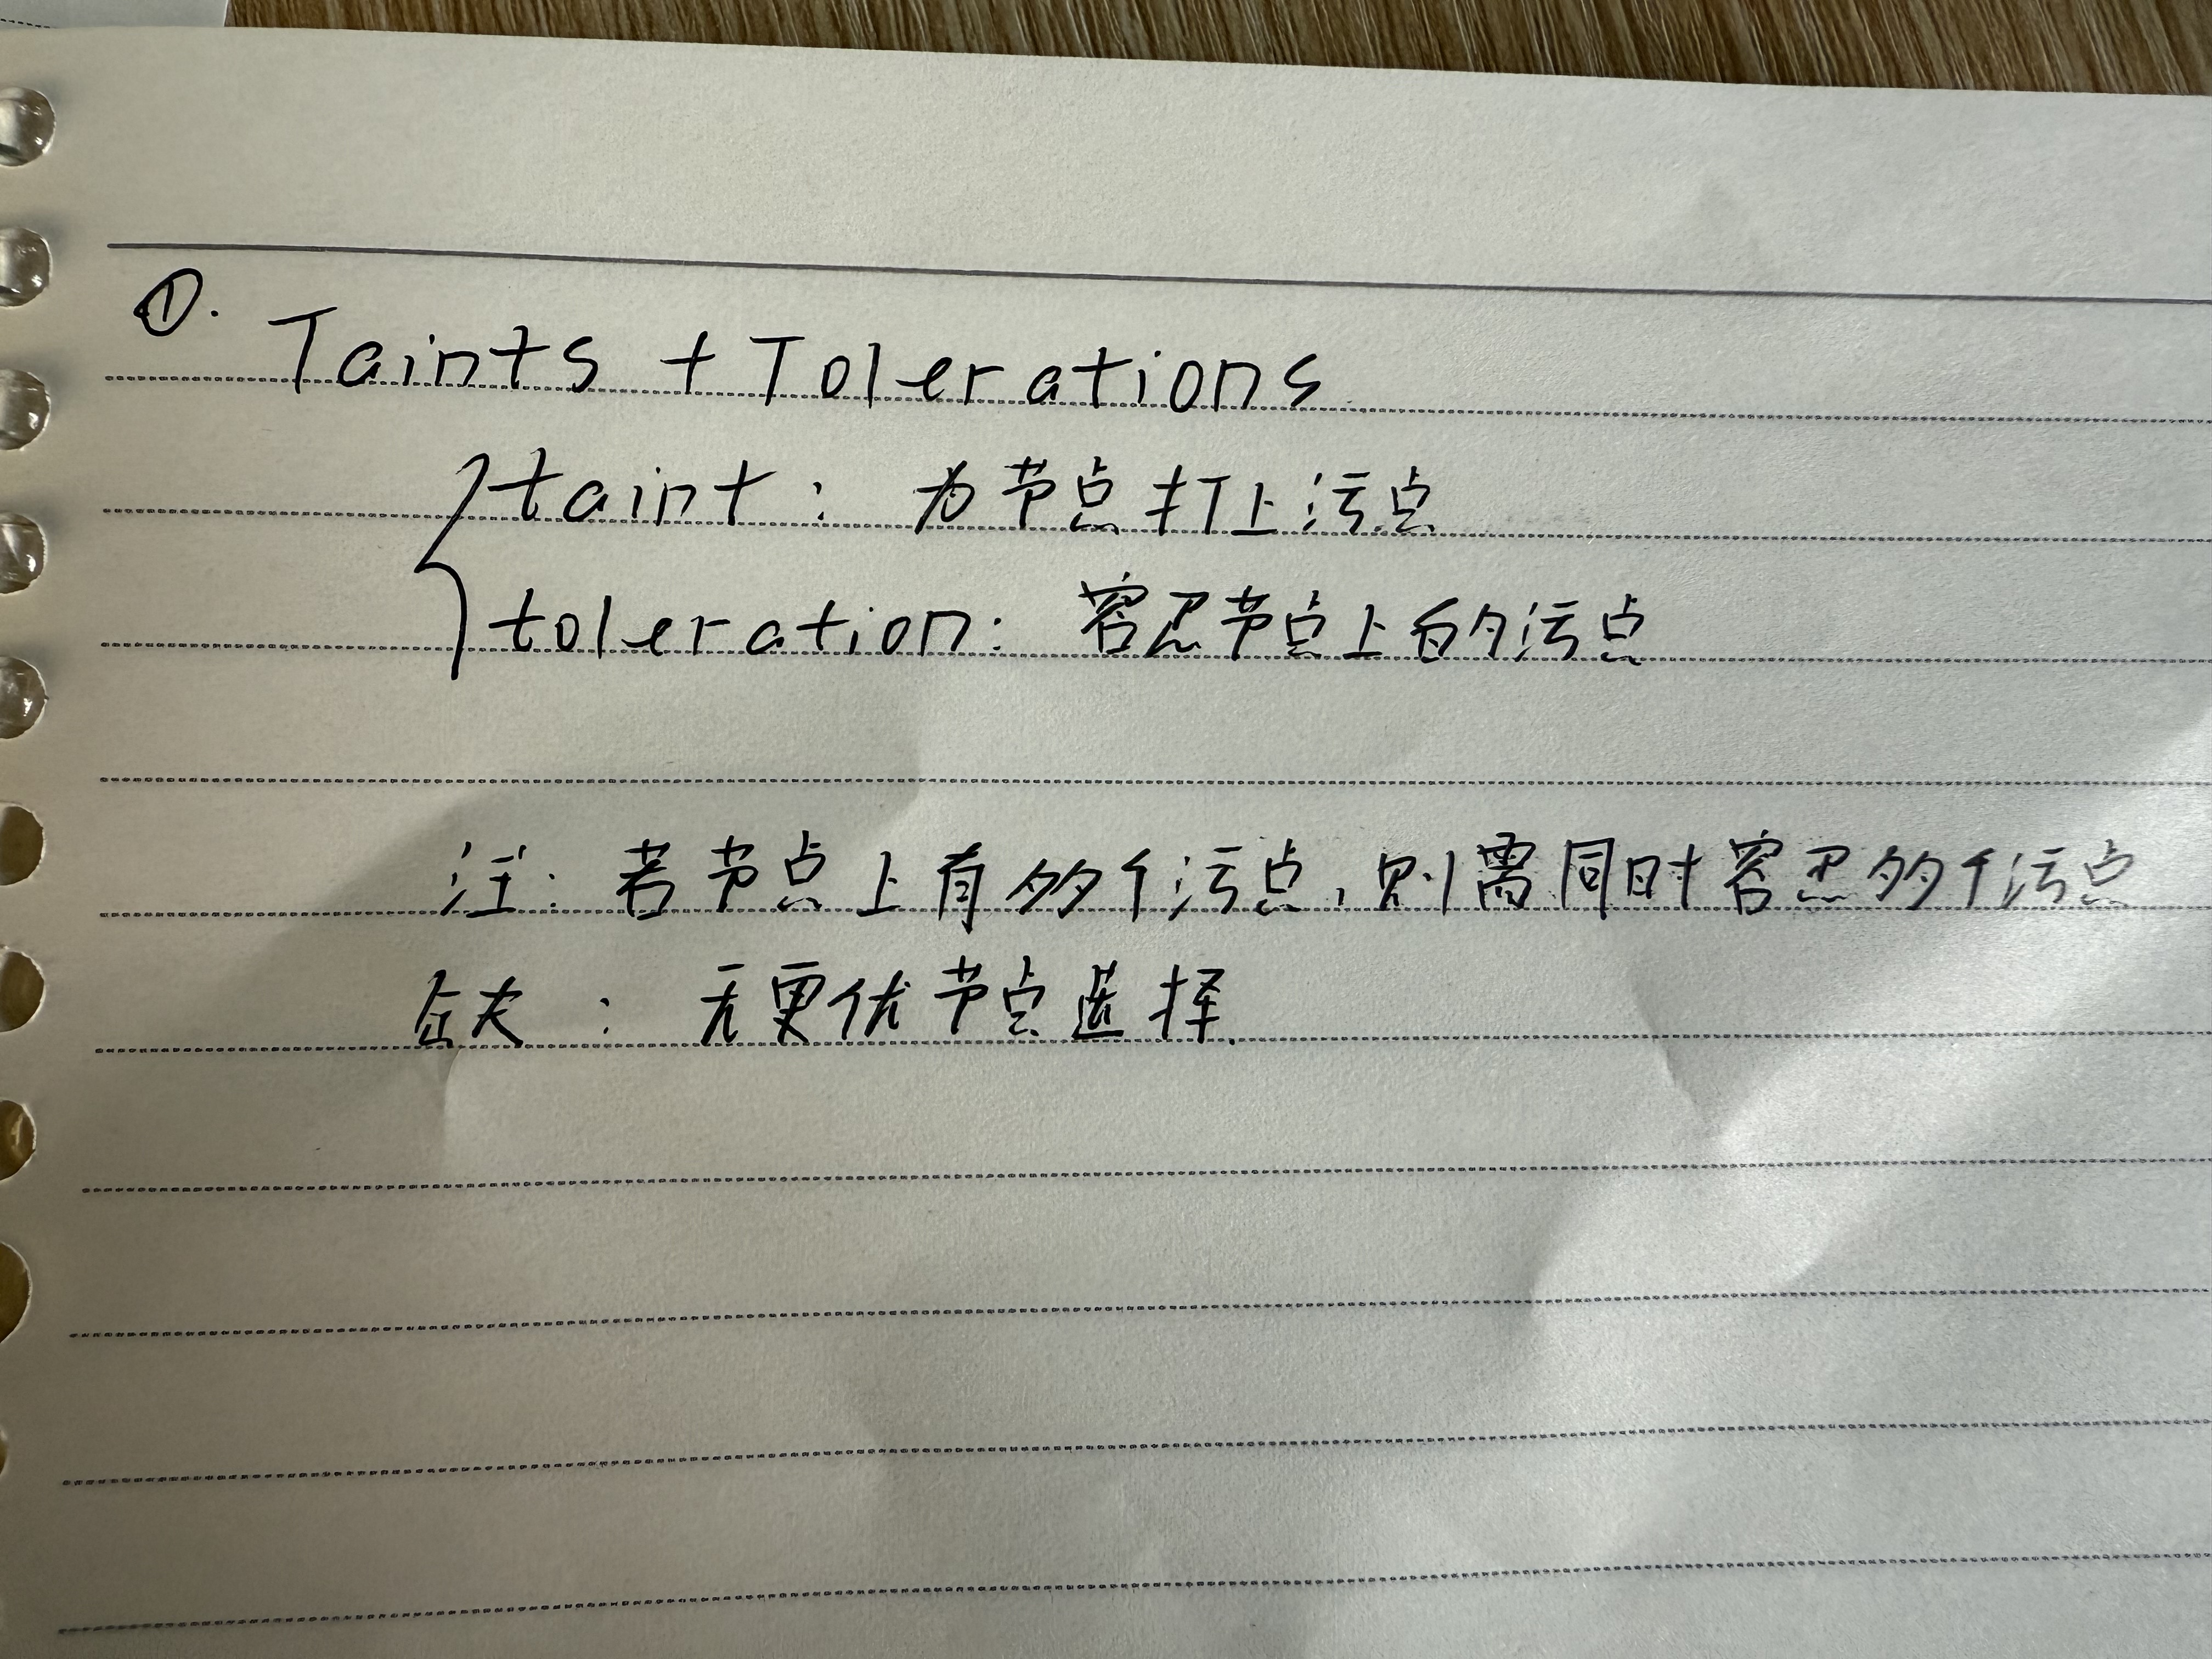 ①. Taints + Tolerations
taint: 为节点打上污点
toleration: 容忍节点上的污点
注: 若节点上有多个污点, 则需同时容忍多个污点
缺: 节点